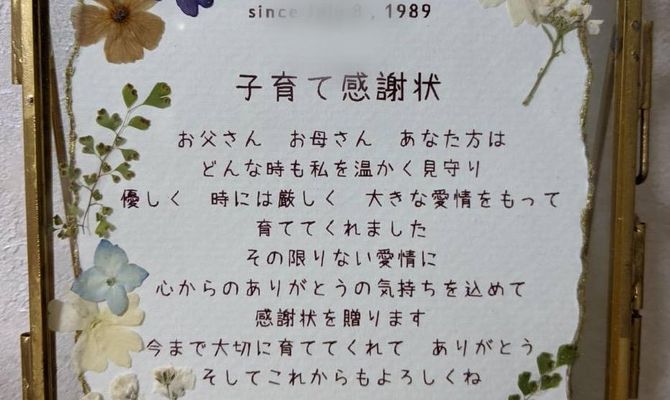 since 8, 1989
子育て感謝状
お父さん　お母さん　あなた方は
どんな時も私を温かく見守り
優しく　時には厳しく　大きな愛情をもって
育ててくれました
その限りない愛情に
心からのありがとうの気持ちを込めて
感謝状を贈ります
今まで大切に育ててくれて　ありがとう
そしてこれからもよろしくね